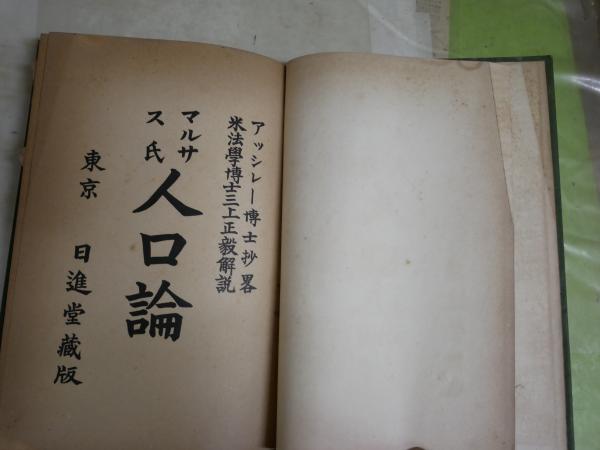 アッシレー博士抄畧
米法學博士三上正毅解説
マルサス氏
人口論
東京 日進堂藏版